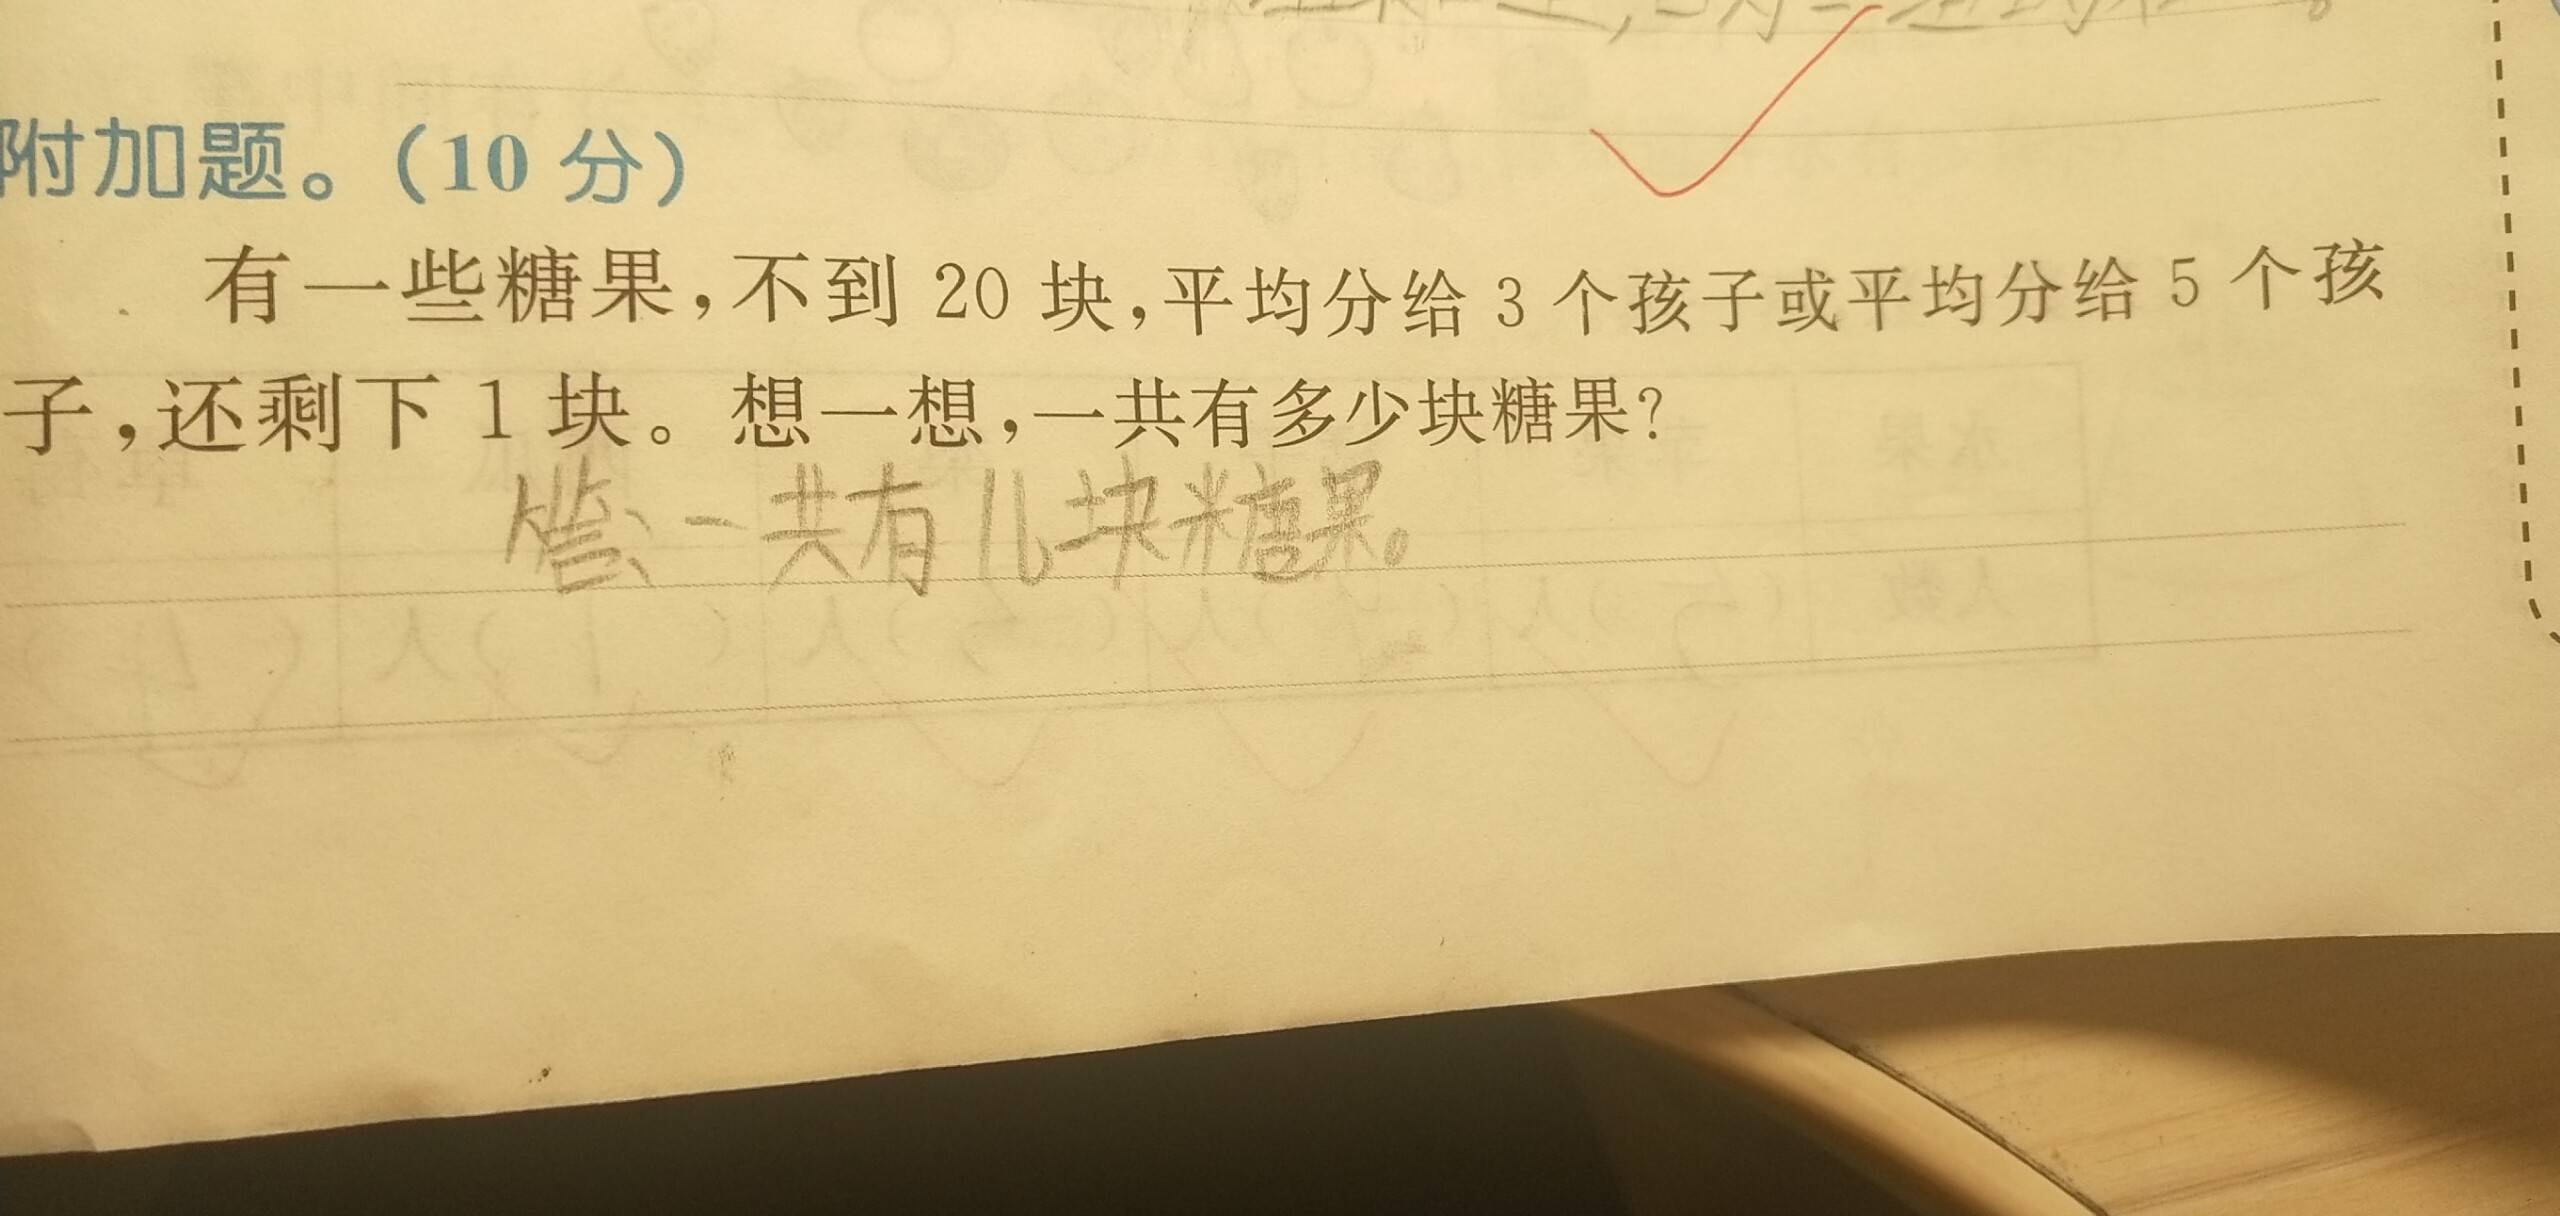 附加题。(10 分)
有一些糖果,不到 20 块,平均分给 3 个孩子或平均分给 5 个孩
子,还剩下 1 块。想一想,一共有多少块糖果?
答:一共有16块糖果。